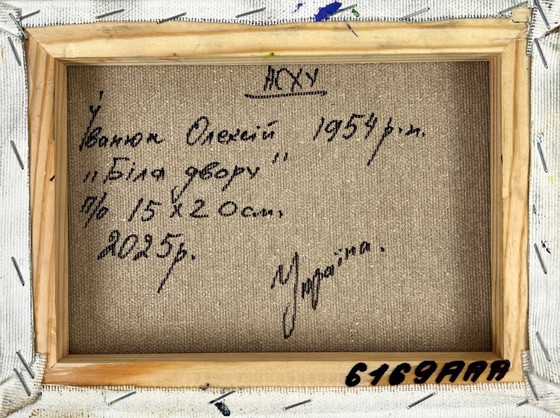 НСХУ
Іванюк Олексій 1954р.н.
„Біля двору"
п/о 15х20см.
2025р.
Україна.
6169ААА